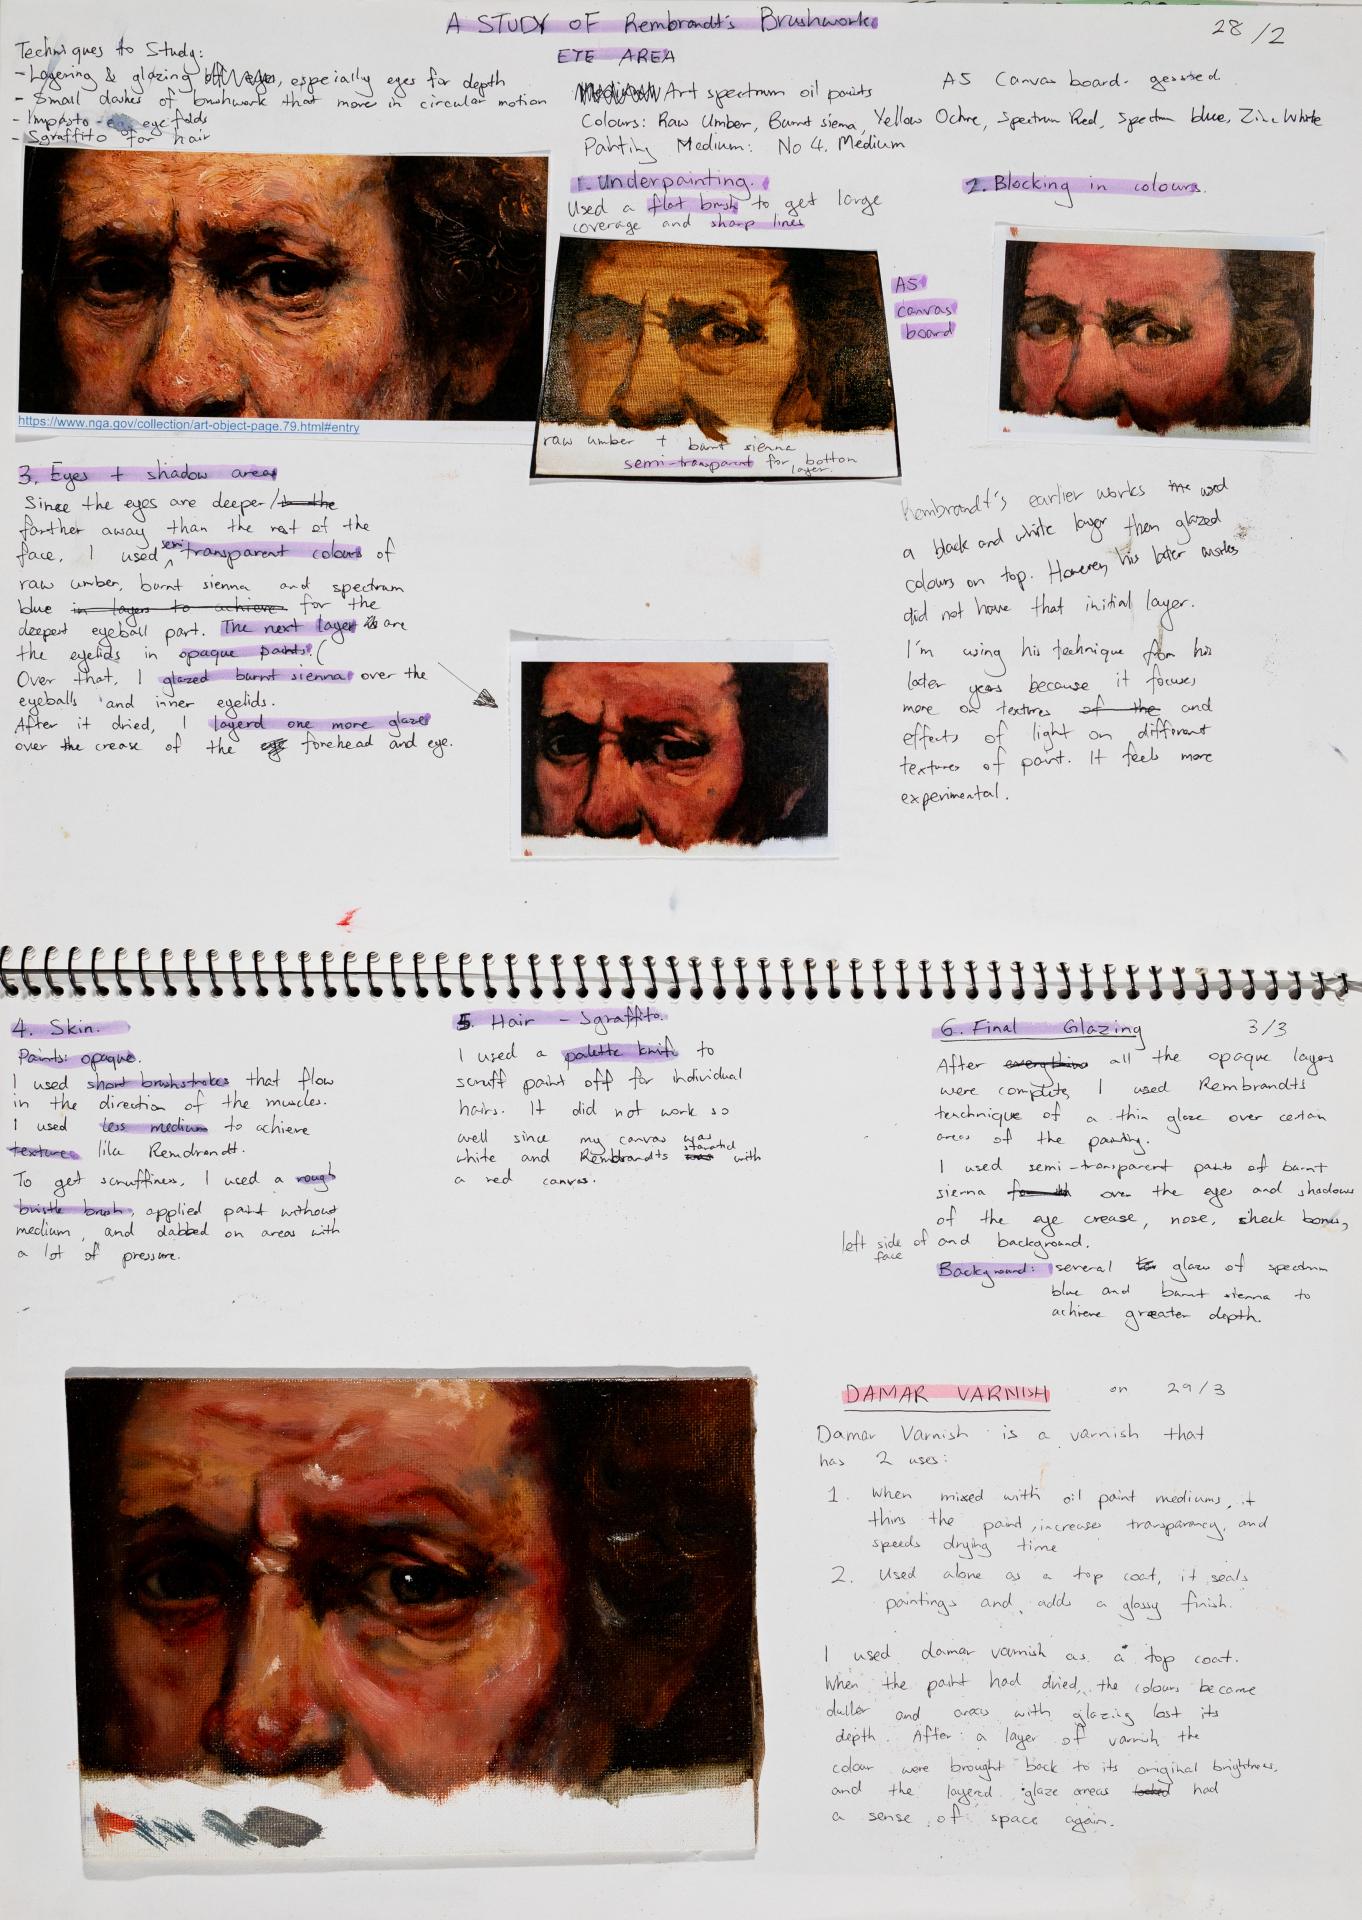 A STUDY OF Rembrandt's Brushwork.
28/2
EYE AREA
Techniques to Study:
- Layering & glazing of eyes, especially eyes for depth
- Small dashes of brushwork that move in circular motion
- Impasto - eye folds
- Sgraffito for hair
Medium Art spectrum oil paints
A5 Canvas board - gessoed
Colours: Raw Umber, Burnt siena, Yellow Ochre, Spectrum Red, Spectrum blue, Zinc White
Painting Medium: No 4. Medium
1. Underpainting.
Used a flat brush to get large
coverage and sharp lines
2. Blocking in colours.
A5
canvas
board
https://www.nga.gov/collection/art-object-page.79.html#entry
raw umber + burnt sienna
semi-transparent for bottom
layer.
3. Eyes + shadow areas
Since the eyes are deeper/to the
farther away than the rest of the
face, I used semi transparent colours of
raw umber, burnt sienna and spectrum
blue in layers to achieve for the
deepest eyeball part. The next layer is are
the eyelids in opaque paints. (
Over that, I glazed burnt sienna over the
eyeballs and inner eyelids.
After it dried, I layerd one more glaze
over the crease of the eye forehead and eye.
Rembrandt's earlier works the used
a black and white layer then glazed
colours on top. However, his later works
did not have that initial layer.
I'm using his technique from his
later years because it focuses
more on textures of the and
effects of light on different
textures of paint. It feels more
experimental.
4. Skin.
Paints: opaque.
I used short brushstrokes that flow
in the direction of the muscles.
I used less medium to achieve
textures like Remdrandt.
To get scruffiness, I used a rough
bristle brush, applied paint without
medium, and dabbed on areas with
a lot of pressure.
5. Hair - Sgraffito.
I used a palette knife to
scruff paint off for individual
hairs. It did not work so
well since my canvas was
white and Rembrandts started with
a red canvas.
6. Final Glazing
3/3
After everything all the opaque layers
were complete, I used Rembrandts
tenchnique of a thin glaze over certain
areas of the painting.
I used semi-transparent paints of burnt
sienna for th over the eyes and shadows
of the eye crease, nose, cheek bones,
left side of face and background.
Background: several glaze of spectrum
blue and burnt sienna to
achieve greater depth.
DAMAR VARNISH on 29/3
Damar Varnish is a varnish that
has 2 uses:
1. When mixed with oil paint mediums, it
thins the paint, increases transparancy, and
speeds drying time
2. Used alone as a top coat, it seals
paintings and adds a glossy finish.
I used damar varnish as a top coat.
When the paint had dried, the colours became
duller and areas with glazing lost its
depth. After a layer of varnish the
colour were brought back to its original brightness,
and the layered glaze areas looked had
a sense of space again.